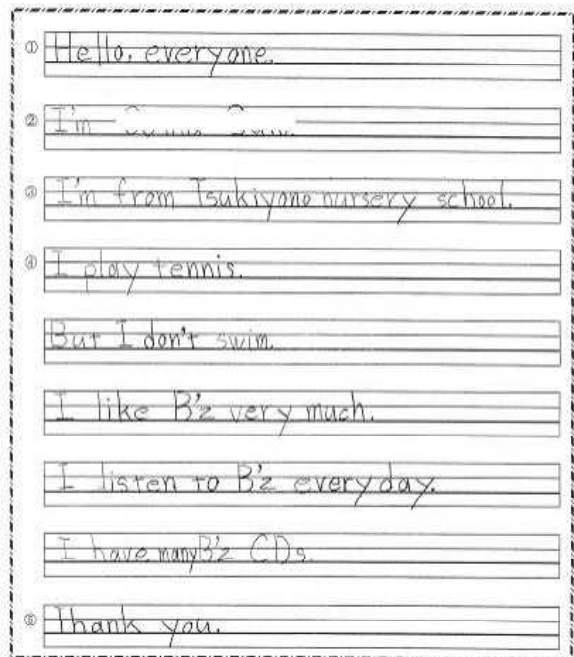 ① Hello, everyone.
② I'm
③ I'm from Tsukiyono nursery school.
④ I play tennis.
But I don't swim.
I like B'z very much.
I listen to B'z every day.
I have many B'z CDs.
⑤ Thank you.